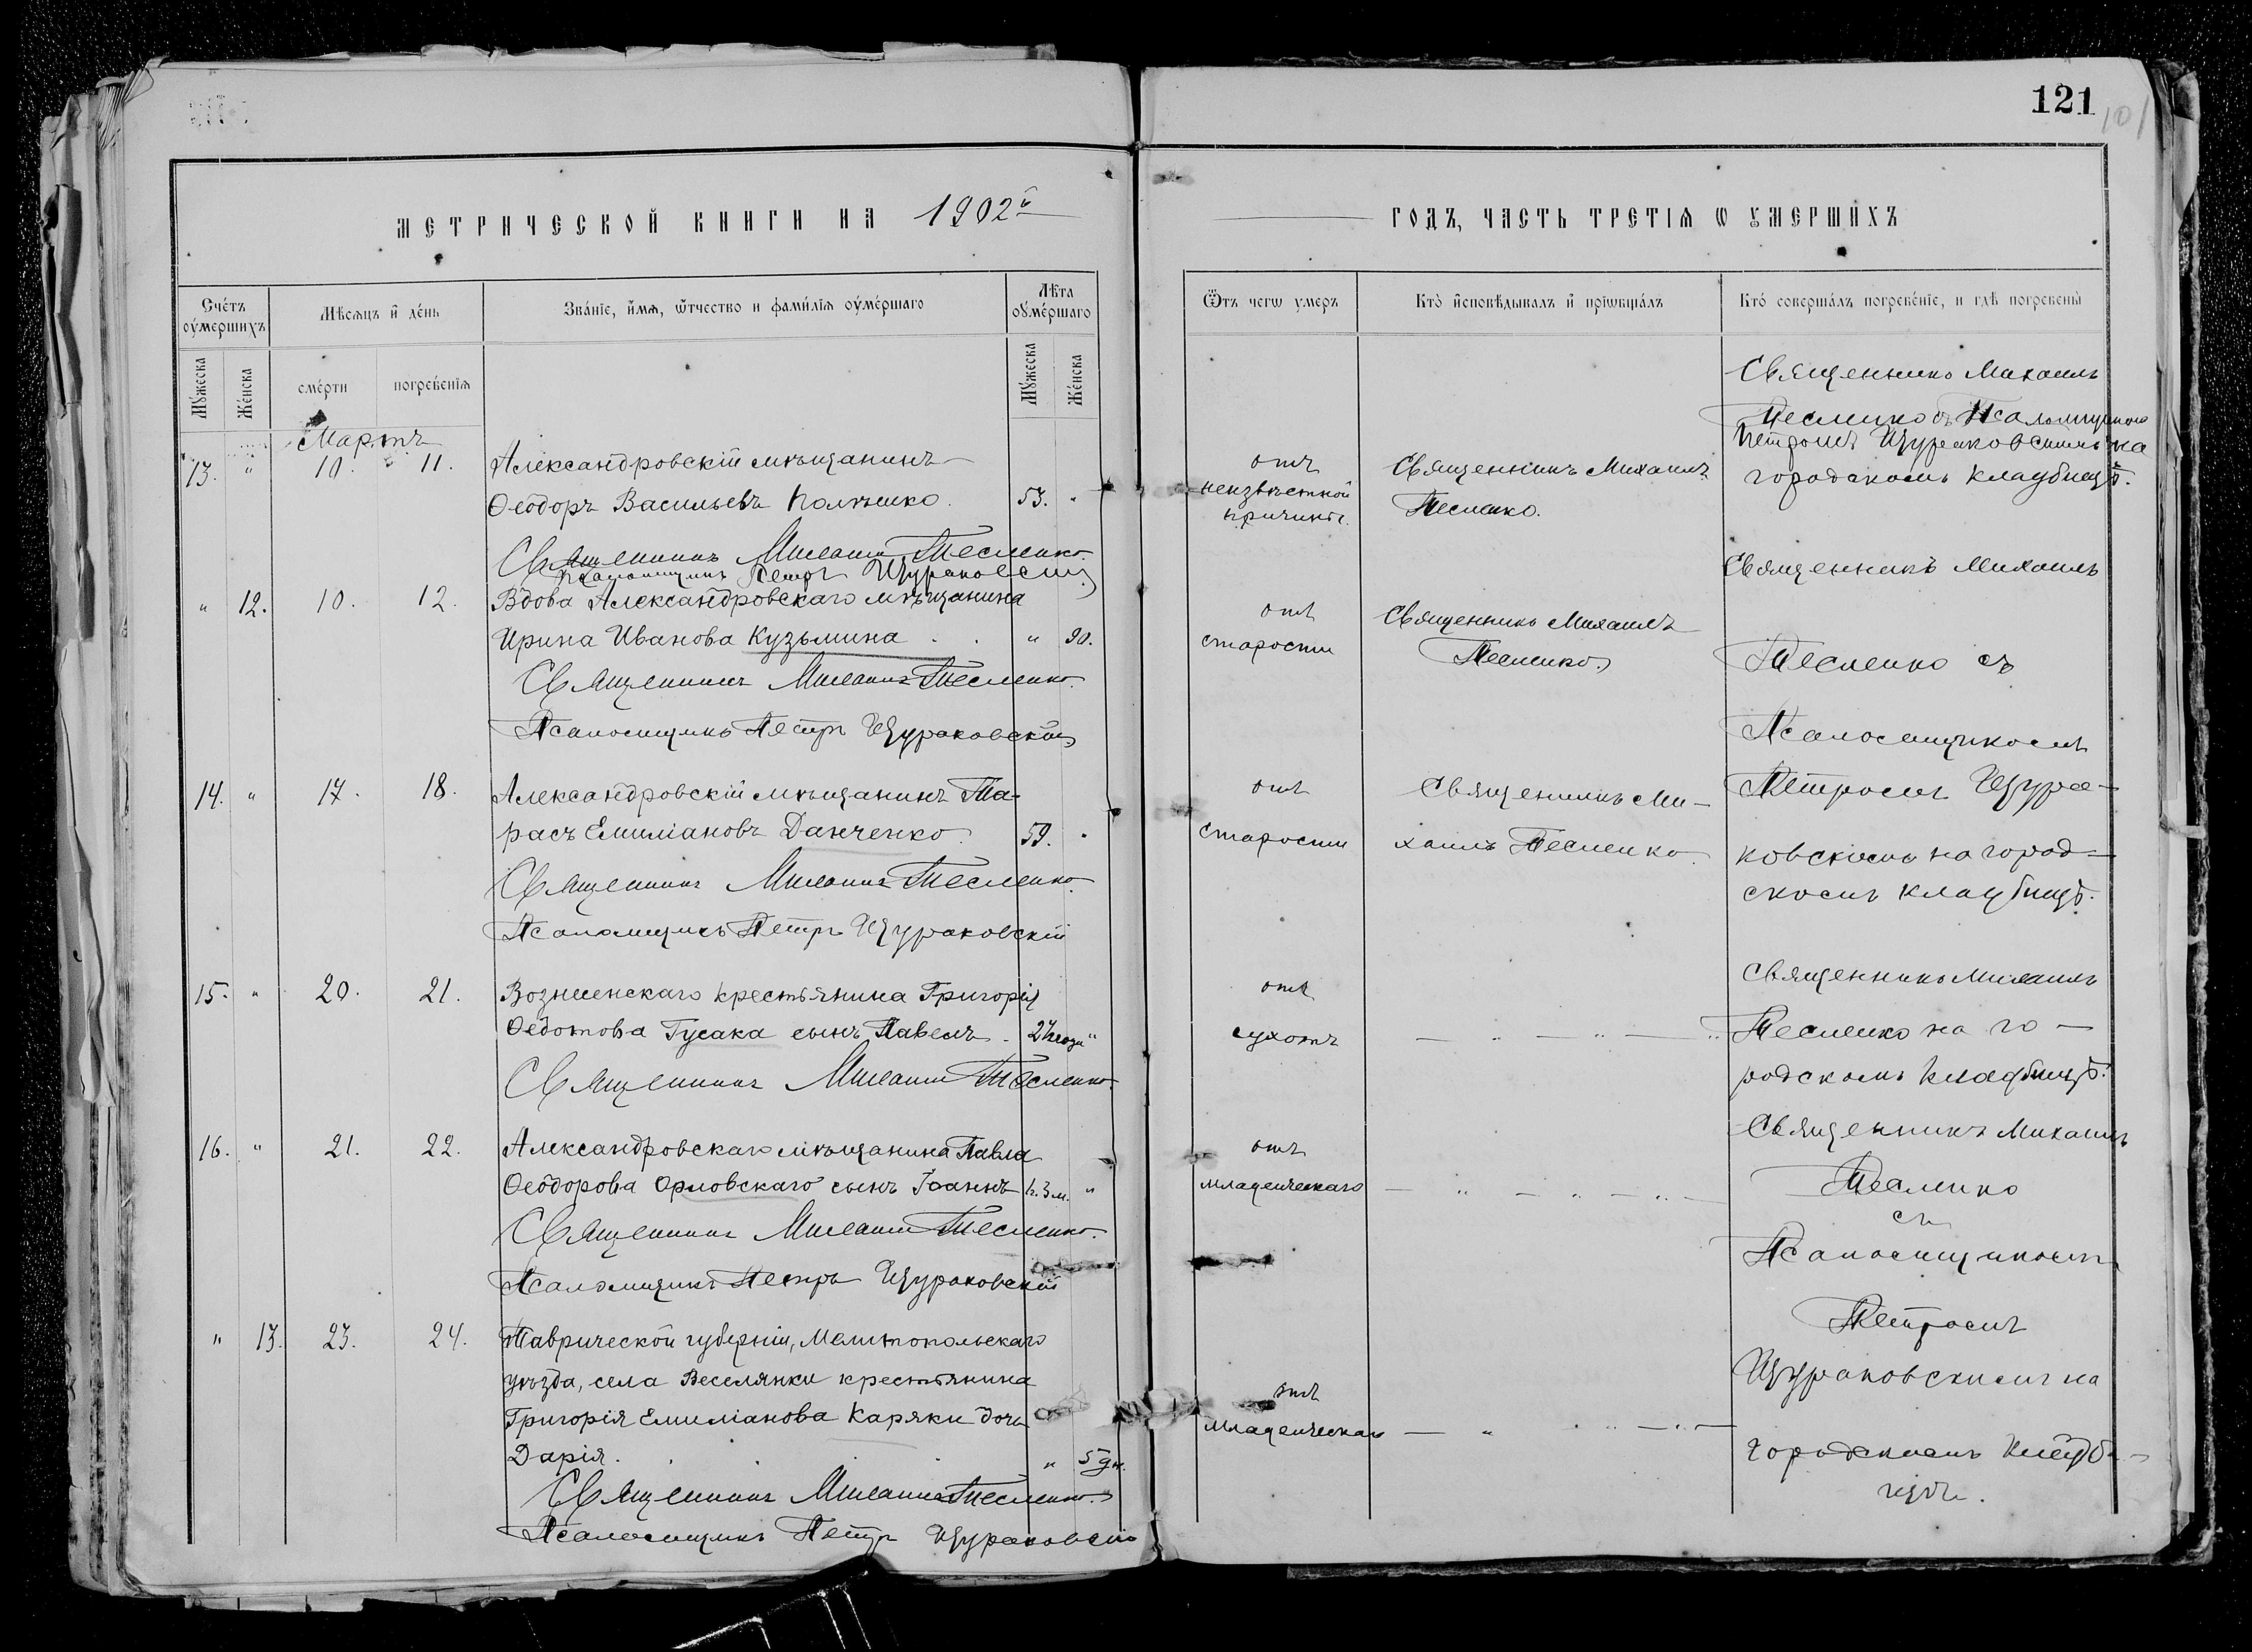 121
101
МЕТРИЧЕСКОЙ КНИГИ НА 1902й
ГОДЪ, ЧАСТЬ ТРЕТІѦ Ѡ УМЕРШИХЪ
Счетъ оумершихъ
Мѣсяцъ и день
Званіе, имя, ѿчество и фамилія оумершаго
Лѣта оумершаго
Ѿтъ чегѡ умеръ
Кто исповѣдывалъ и пріѡбщалъ
Кто совершалъ погребеніе, и гдѣ погребены
Мужеска
Женска
смерти
погребенія
Мужеска
Женска
Мартъ
13. " 10. 11.
Александровскій мѣщанинъ
Ѳеодоръ Васильевъ 53. "
Священникъ Михаилъ Тесленко.
Псаломщикъ Петръ Щураковскій
отъ
неизвѣстной
причины.
Священникъ Михаилъ
Тесленко.
Священникъ Михаилъ
Тесленко съ Псаломщикомъ
Петромъ Щураковскимъ на
городскомъ кладбищѣ.
" 12. 10. 12.
Вдова Александровскаго мѣщанина
Ирина Иванова Кузьмина . . " 90.
Священникъ Михаилъ Тесленко.
Псаломщикъ Петръ Щураковскій
отъ
старости
Священникъ Михаилъ
Тесленко.
Священникъ Михаилъ
Тесленко съ
Псаломщикомъ
14. " 17. 18.
Александровскій мѣщанинъ Та-
расъ Емиліановъ Данченко. 59. "
Священникъ Михаилъ Тесленко.
Псаломщикъ Петръ Щураковскій
отъ
старости
Священникъ Ми-
хаилъ Тесленко.
Петромъ Щура-
ковскимъ на город-
скомъ кладбищѣ.
15. " 20. 21.
Вознесенскаго крестьянина Григорія
Ѳедотова Гусака сынъ Павелъ.
Священникъ Михаилъ Тесленко.
отъ
сухотъ
Священникъ Михаилъ
Тесленко на го-
родскомъ кладбищѣ.
16. " 21. 22.
Александровскаго мѣщанина Павла
Ѳеодорова Орловскаго сынъ Іоаннъ 3 м. "
Священникъ Михаилъ Тесленко.
Псаломщикъ Петръ Щураковскій
отъ
младенческаго
Священникъ Михаилъ
Тесленко
съ
Псаломщикомъ
" 13. 23. 24.
Таврической губерніи, Мелитопольскаго
уѣзда, села Веселянки крестьянина
Григорія Емиліанова Каряки дочь
Дарія. " 5 дн.
Священникъ Михаилъ Тесленко.
Псаломщикъ Петръ Щураковскій
отъ
младенческаго
Петромъ
Щураковскимъ на
городскомъ кладби-
щѣ.